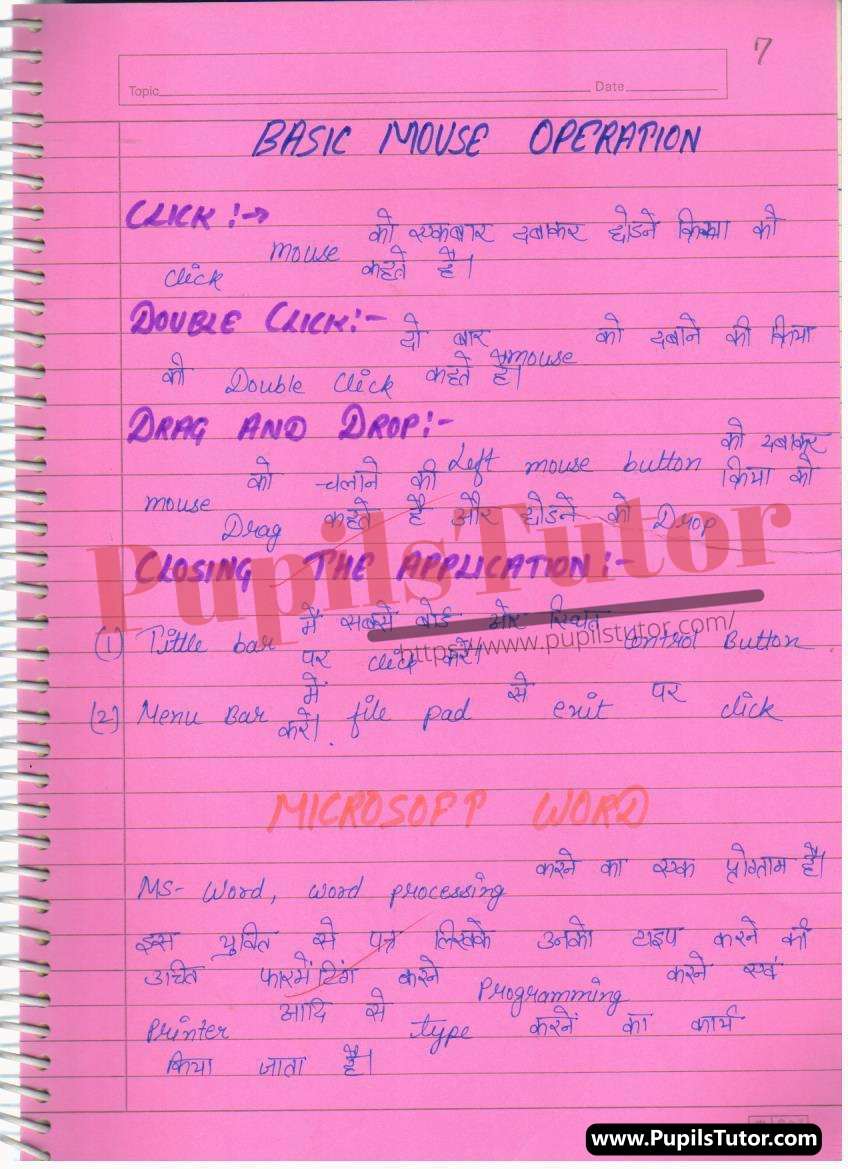 7
Topic Date
BASIC MOUSE OPERATION
CLICK :→
mouse को एकबार दबाकर छोडने क्रिया को
click कहते है।
DOUBLE CLICK:-
दो बार mouse को दबाने की क्रिया
को Double click कहते है।
DRAG AND DROP:-
Left mouse button को दबाकर
mouse को चलाने की क्रिया को
Drag कहते है और छोडने को Drop
PupilsTutor
CLOSING THE APPLICATION:-
(1) Tittle bar में सबसे ओर स्थित control Button
पर click करें।
https://www.pupilstutor.com/
(2) Menu Bar में file pad से exit पर click
करें।
MICROSOFT WORD
MS- Word, word processing करने का एक प्रोग्राम है।
इस युक्ति से पत्र लिखके उनको टाइप करने की
उचित फारमेंटिंग करने Programming करने एवं
Printer आदि से type करनें का कार्य
किया जाता है।
www.PupilsTutor.com